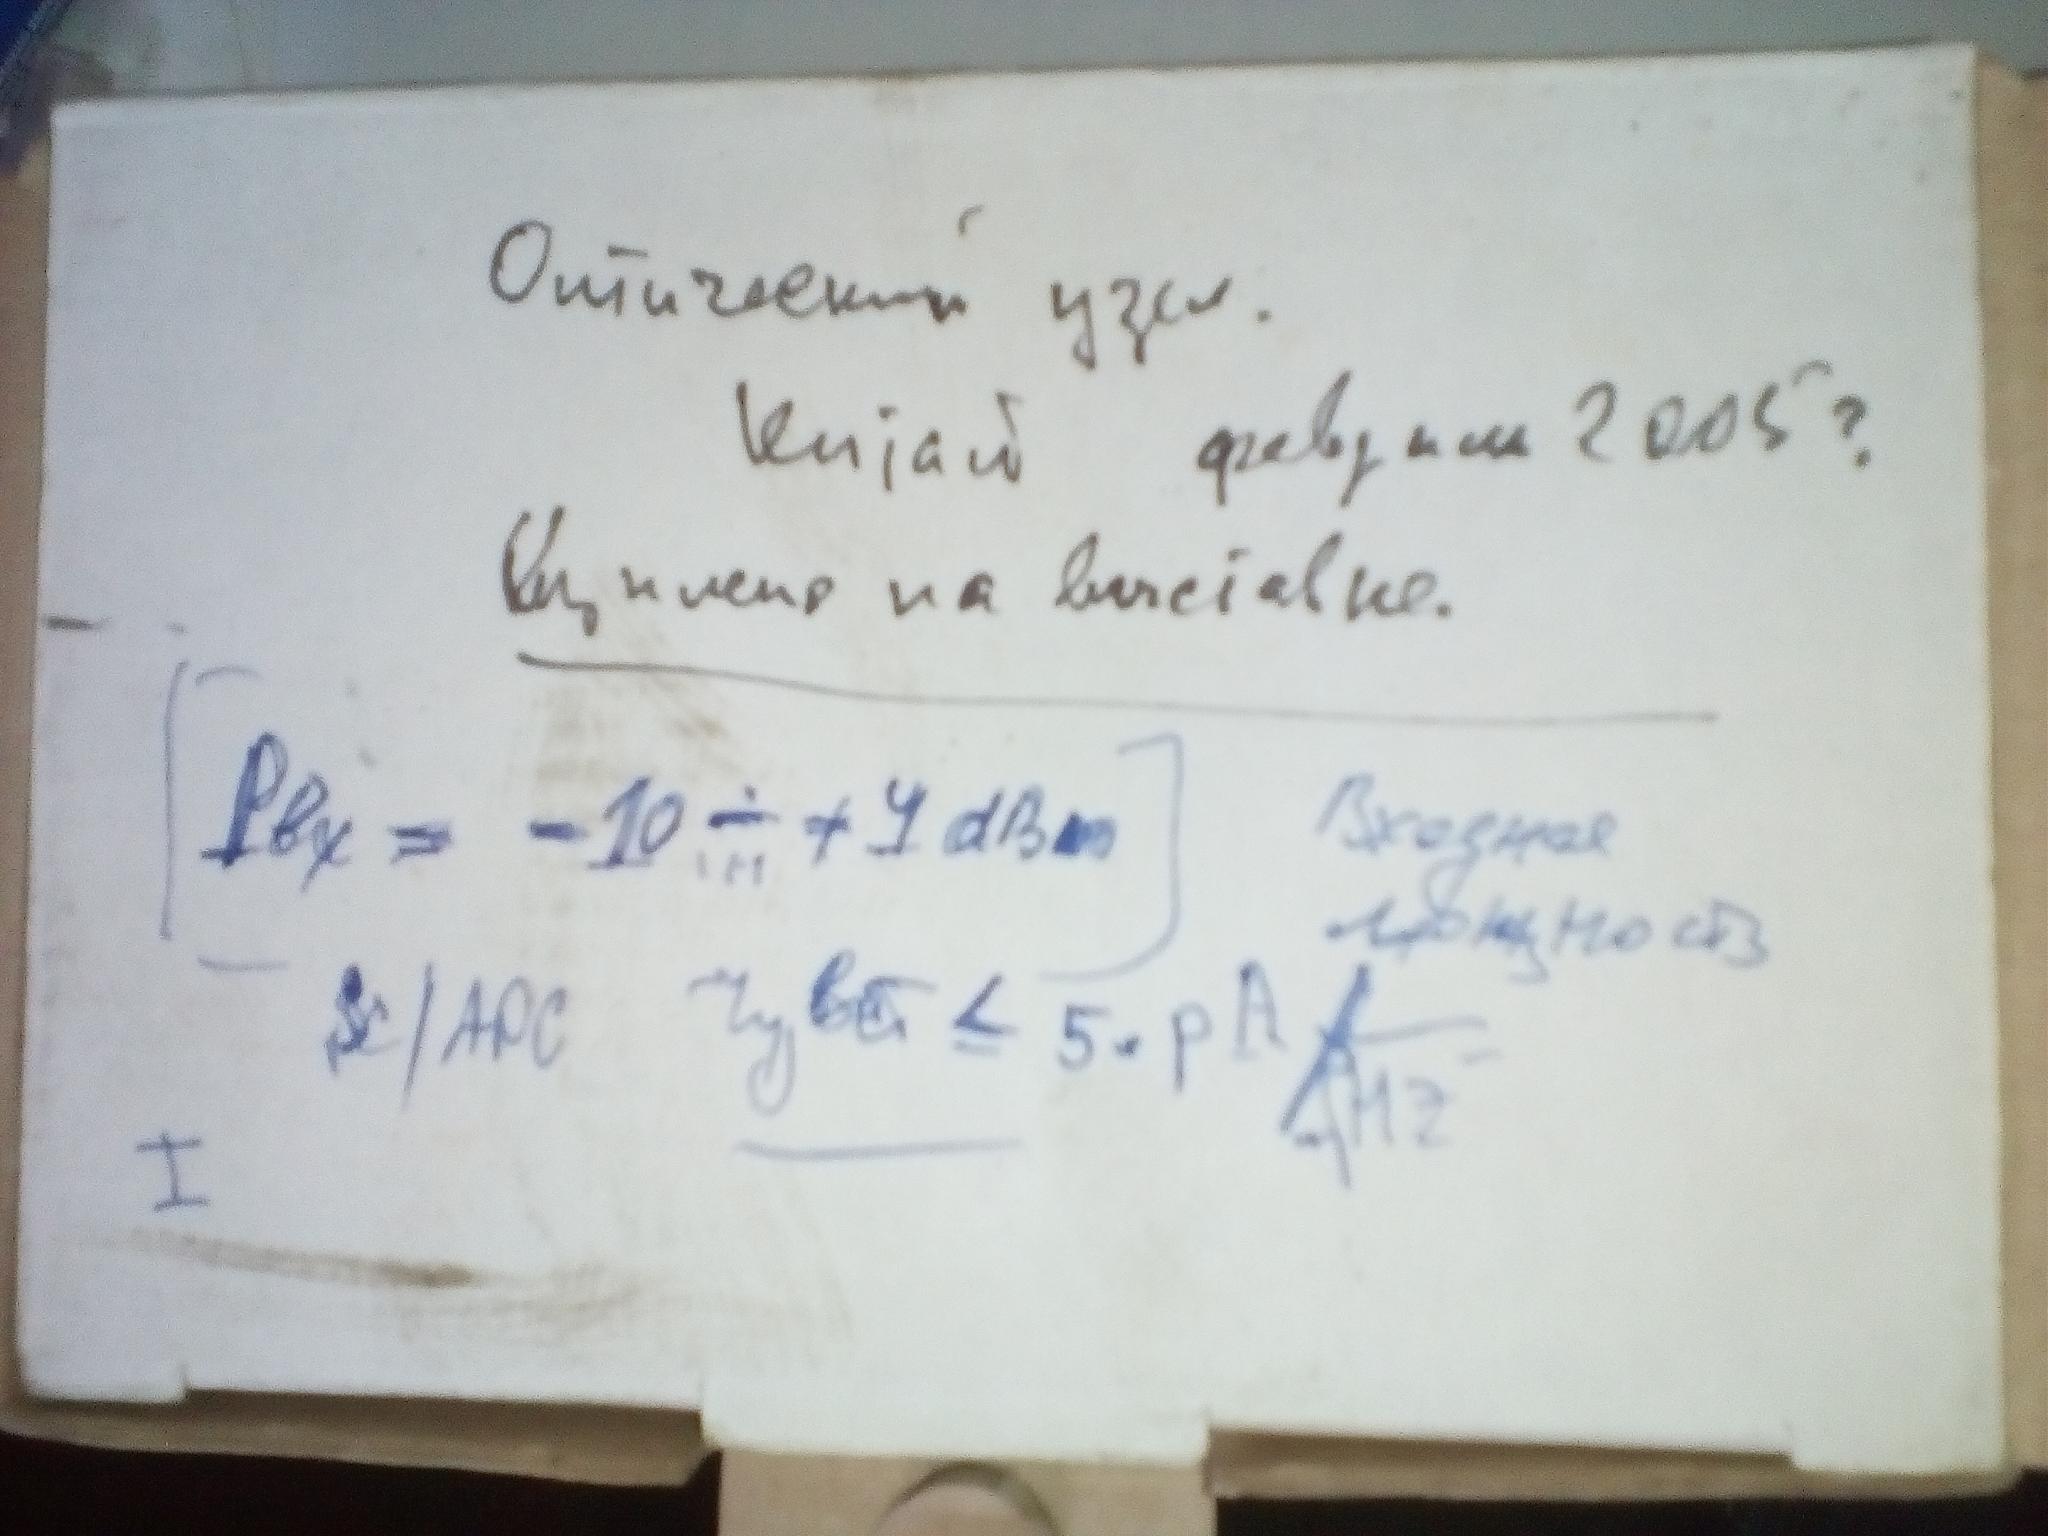 Оптический узел.
Китай февраль 2005?
Куплено на выставке.
Рвх = -10 ÷ + 4 dBm
Входная
мощность
SC/APC Чувст ≤ 5. pA/√Hz
I